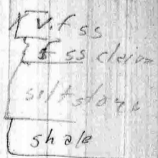 v.f ss
f ss
siltstone
shale